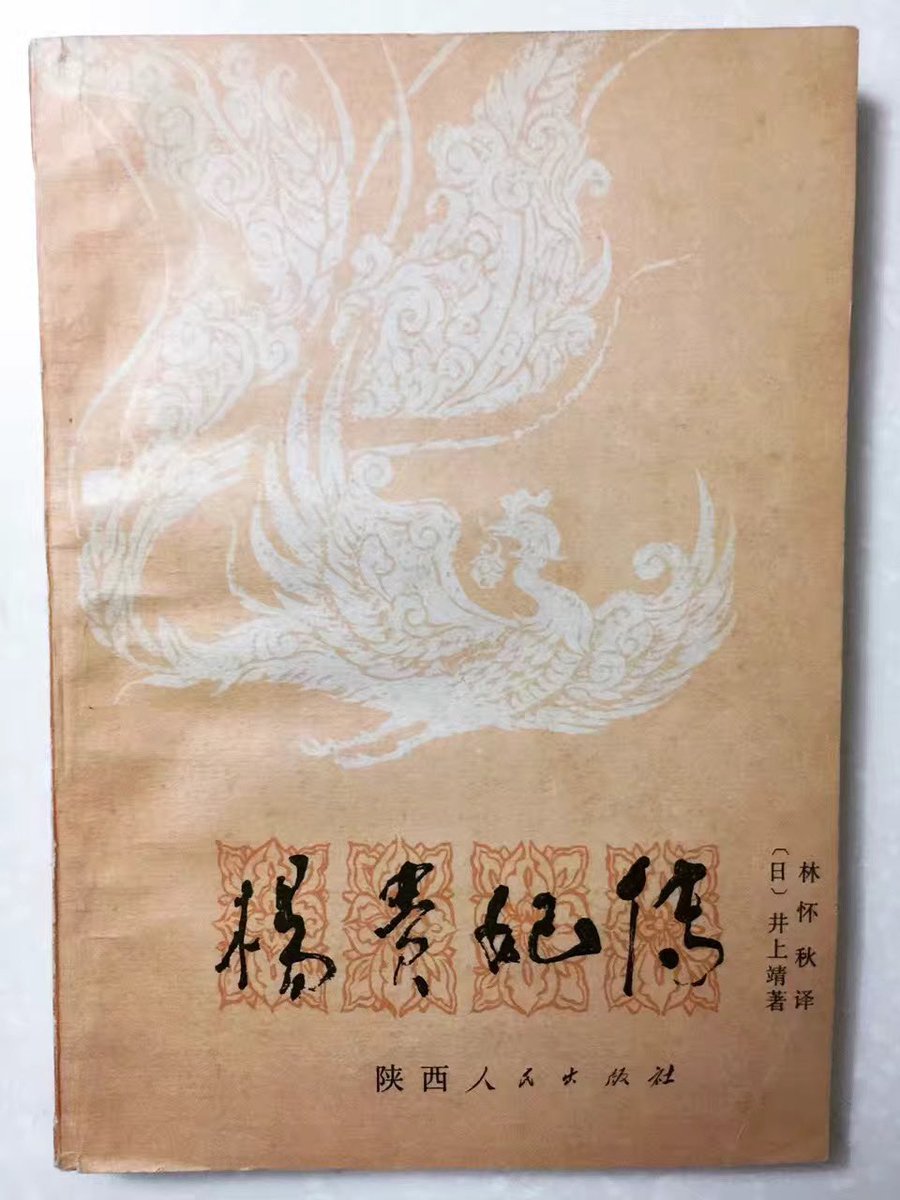 楊貴妃傳
〔日〕井上靖著
林怀秋译
陕西人民出版社